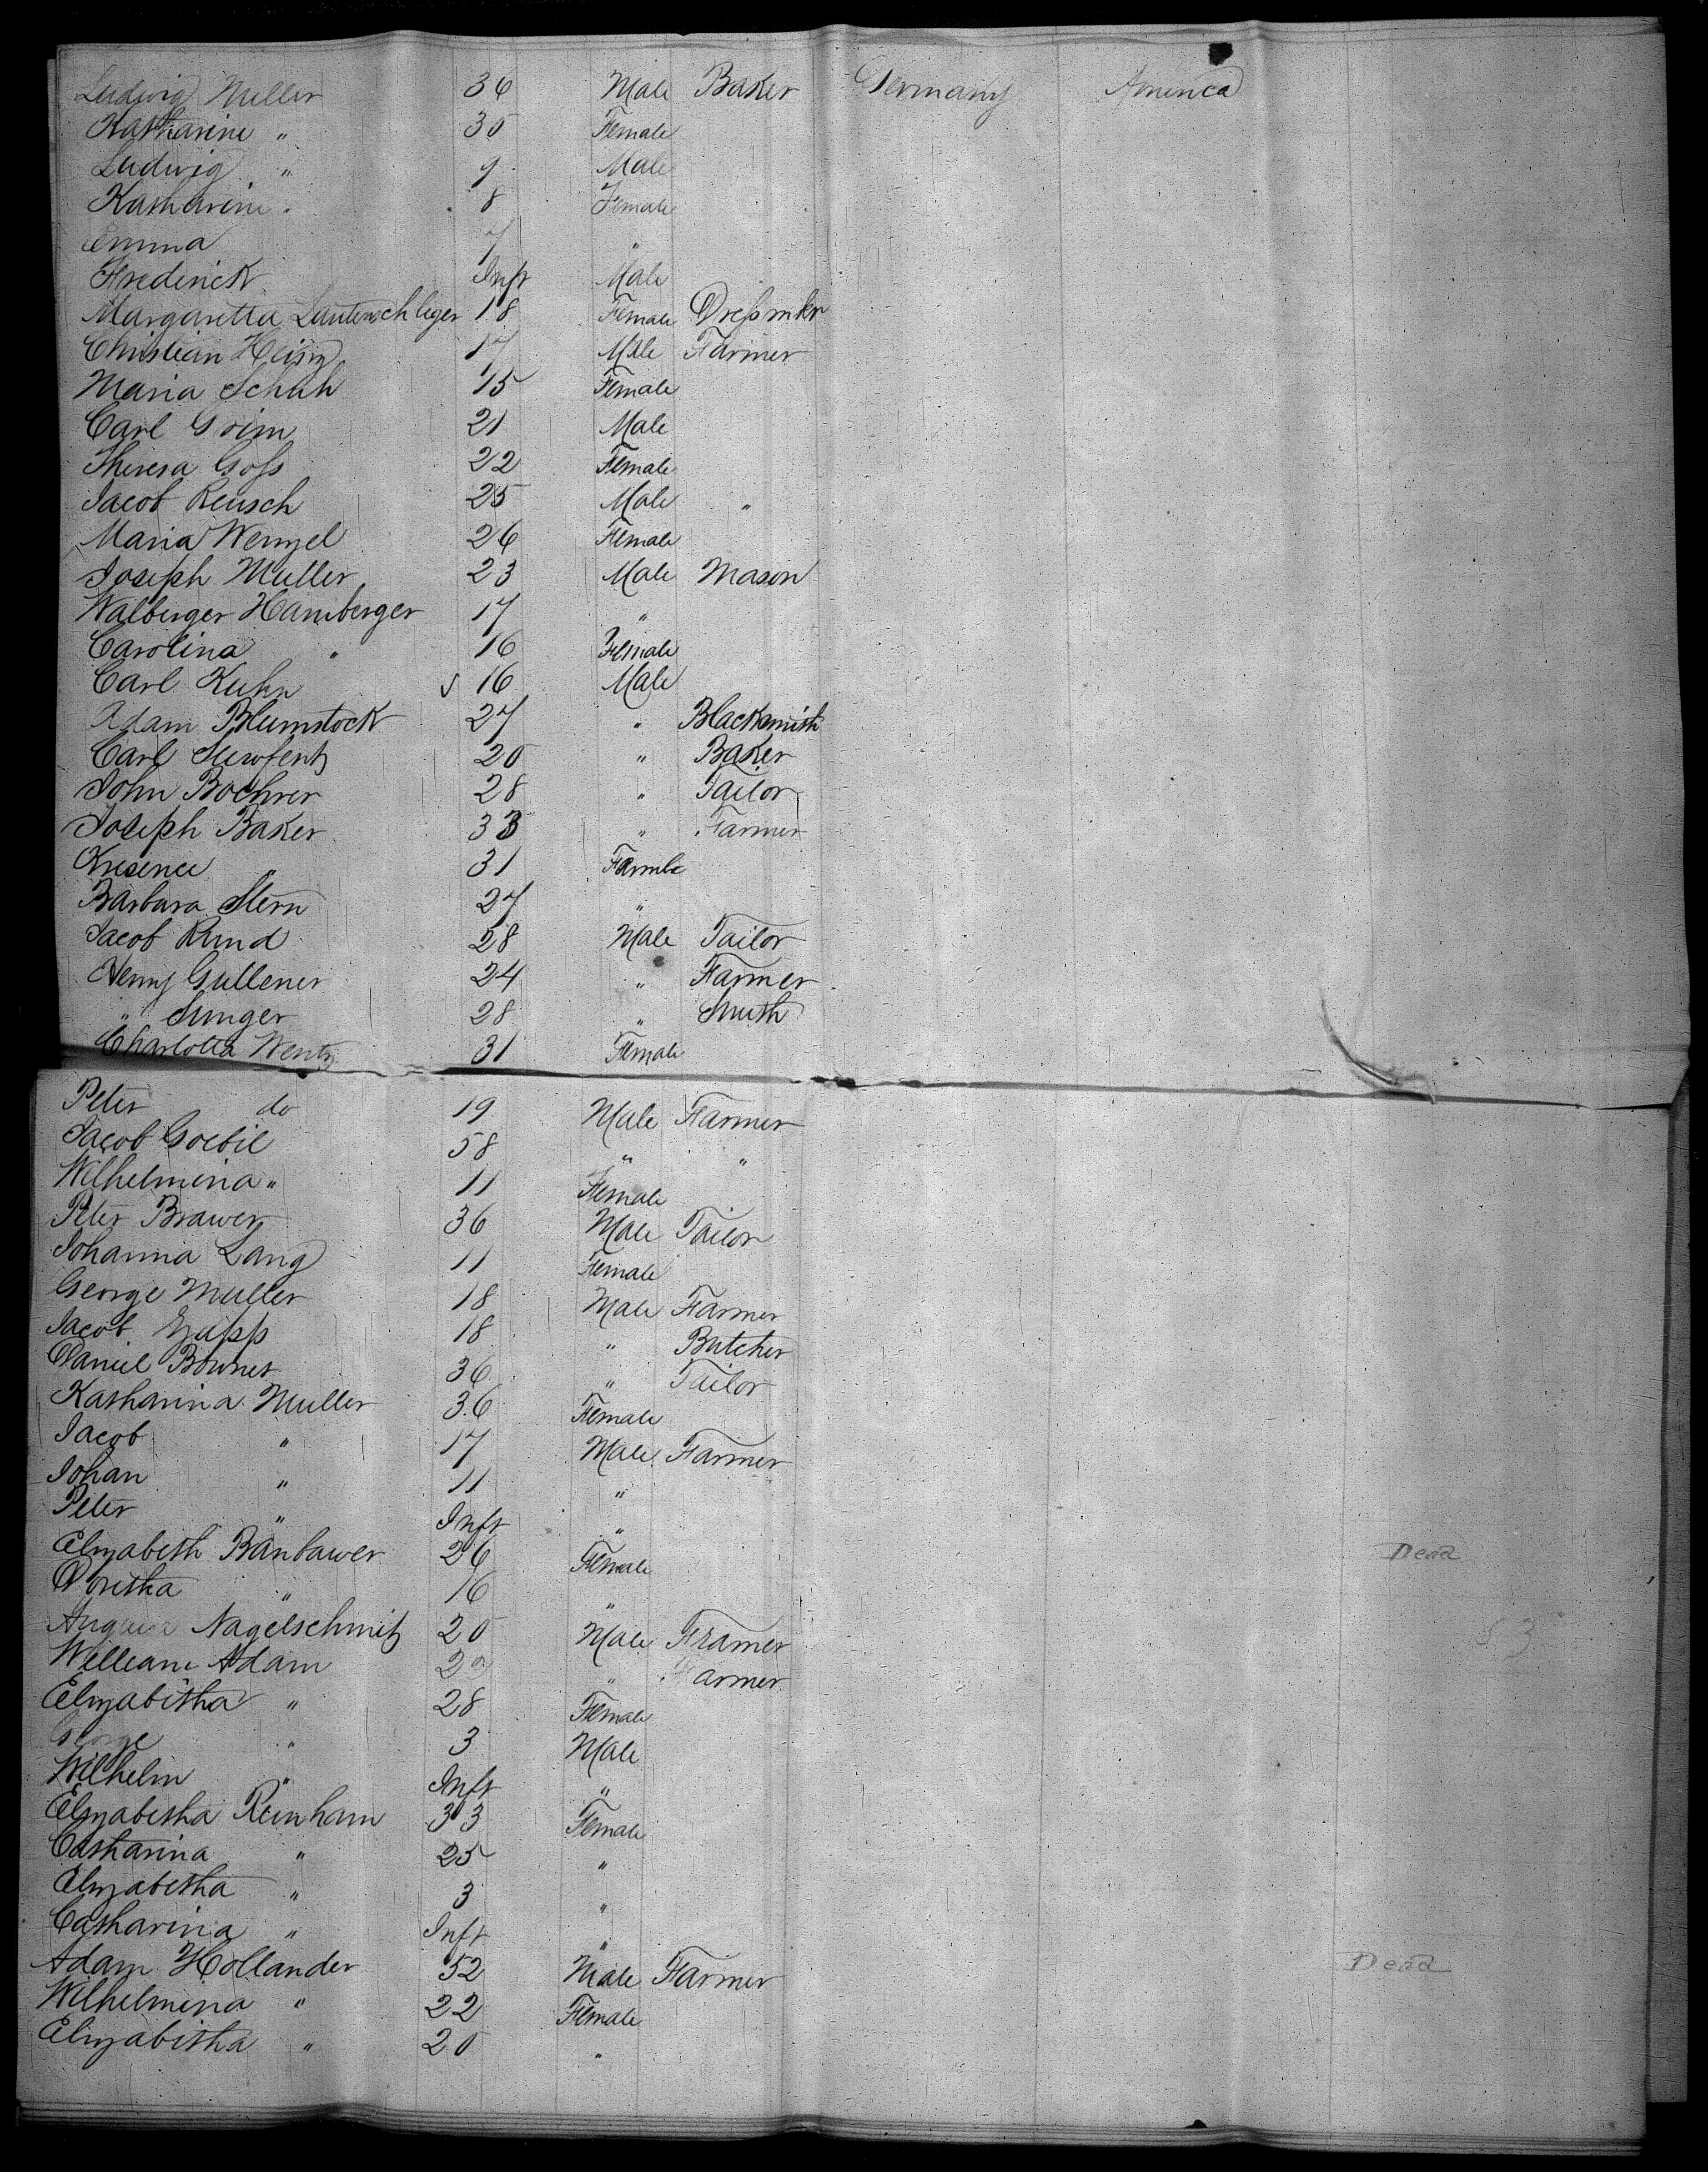 Ludwig Muller 36 Male Baker Germany America
Katharine " 35 Female
Ludwig " 9 Male
Katharine " 8 Female
Emma 7 "
Frederick Inft Male
Margaretta Lautenschleger 18 Female Dressmkr
Christian Heisz 17 Male Farmer
Maria Schuh 15 Female
Carl Grim 21 Male
Theresa Goss 22 Female
Jacob Reusch 25 Male "
Maria Wenzel 26 Female
Joseph Muller 23 Male Mason
Walberger Hamberger 17 "
Carolina " 16 Female
Carl Kuhn 16 Male
Adam Blumstock 27 " Blacksmith
Carl 20 " Baker
John Boehrer 28 " Tailor
Joseph Baker 33 " Farmer
Kresence " 31 Famle
Barbara Stern 27 "
Jacob Rund 28 Male Tailor
Henry Gullener 24 " Farmer
" Singer 28 " Smith
Charlotta Wentz 31 Female
Peter do 19 Male Farmer
Jacob Goebil 58 " "
Wilhelmina " 11 Female
Peter Brawer 36 Male Tailor
Johanna Lang 11 Female
George Muller 18 Male Farmer
Jacob Zapp 18 " Butcher
Daniel Bowner 36 " Tailor
Katharina Muller 36 Female
Jacob " 17 Male Farmer
Johan " 11 "
Peter " Inft "
Elizabeth Banbawer 26 Female Dead
Doretha " 16 "
August Nagelschmitz 20 Male Framer
William Adam 29 " Farmer
Elizabetha " 28 Female
George " 3 Male
Wilhelm " Inft "
Elizabetha Reinham 33 Female
Catharina " 25 "
Elizabetha " 3 "
Catharina " Inft "
Adam Hollander 52 Male Farmer Dead
Wilhelmina " 22 Female
Elizabetha " 20 "